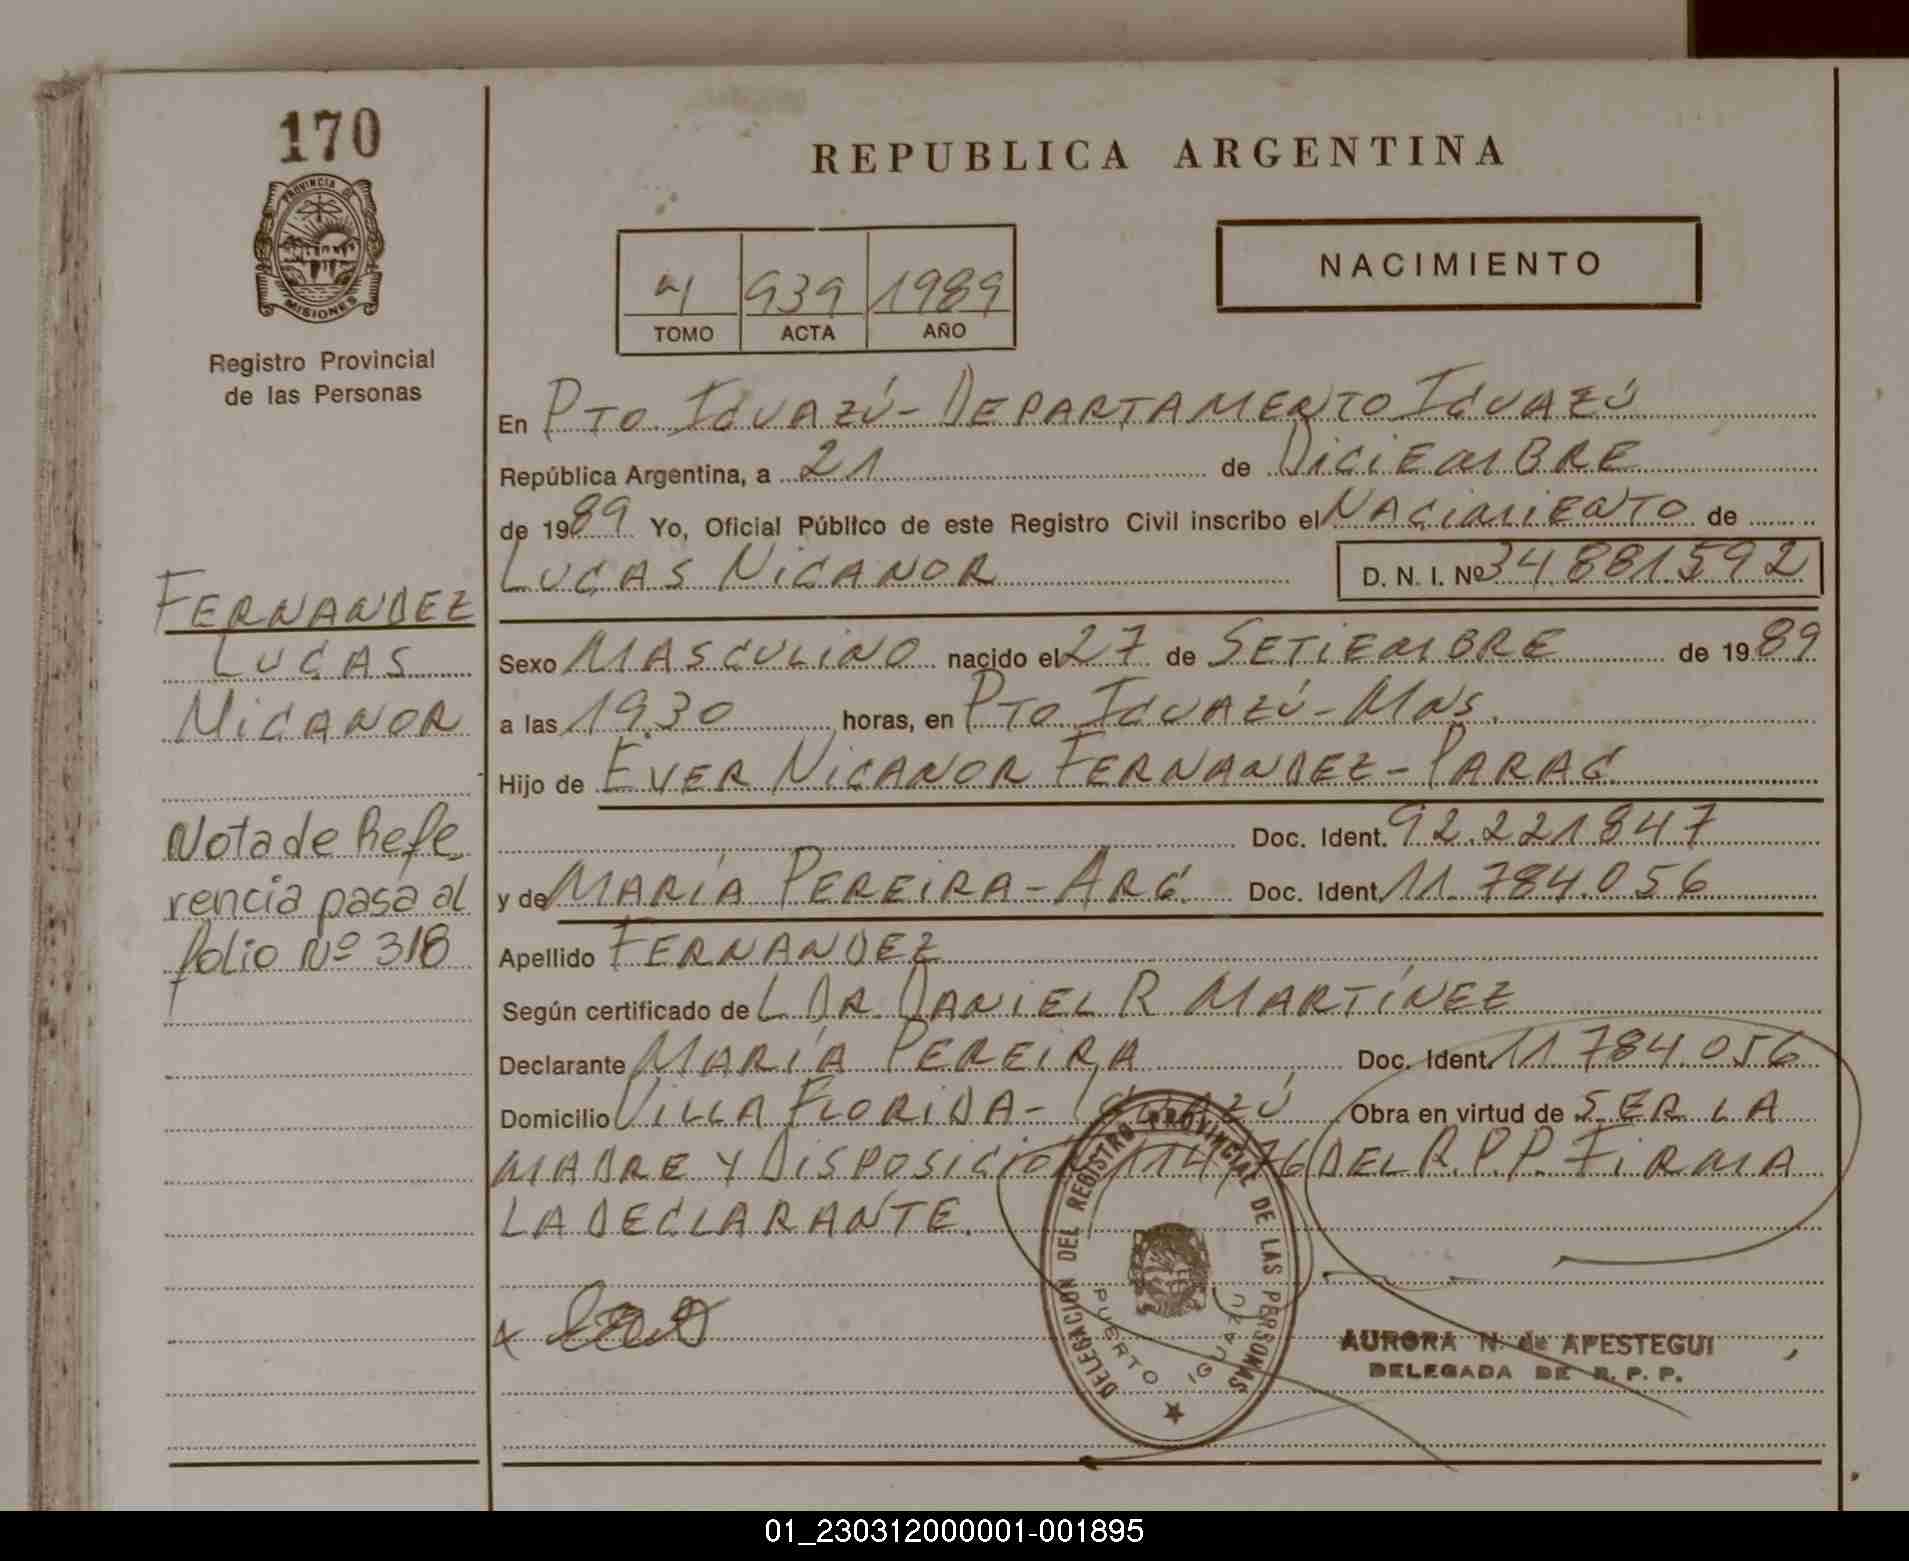 170
PROVINCIA DE
MISIONES
Registro Provincial
de las Personas
FERNANDEZ
LUCAS
NICANOR
Nota de Refe
rencia pasa al
folio Nº 318
REPUBLICA ARGENTINA
939 1989
TOMO ACTA AÑO
NACIMIENTO
En PTO. IGUAZÚ - DEPARTAMENTO IGUAZÚ
República Argentina, a 21 de DICIEMBRE
de 1989 Yo, Oficial Público de este Registro Civil inscribo el NACIMIENTO de
LUCAS NICANOR D. N. I. Nº 34.881.592
Sexo MASCULINO nacido el 27 de SETIEMBRE de 1989
a las 19.30 horas, en PTO IGUAZÚ - MNS.
Hijo de EVER NICANOR FERNANDEZ - PARAG.
Doc. Ident. 92.221.847
y de MARÍA PEREIRA - ARG. Doc. Ident. 11.784.056
Apellido FERNANDEZ
Según certificado de L. DR. DANIEL R MARTÍNEZ
Declarante MARÍA PEREIRA Doc. Ident. 11.784.056
Domicilio VILLA FLORIDA - IGUAZÚ Obra en virtud de SER LA
MADRE Y DISPOSICIÓN 114/76 DEL R.P.P. FIRMA
LA DECLARANTE.
DELEGACION DEL REGISTRO PROVINCIAL DE LAS PERSONAS
PUERTO IGUAZU
AURORA N. de APESTEGUI
DELEGADA DE R. P. P.
01_230312000001-001895